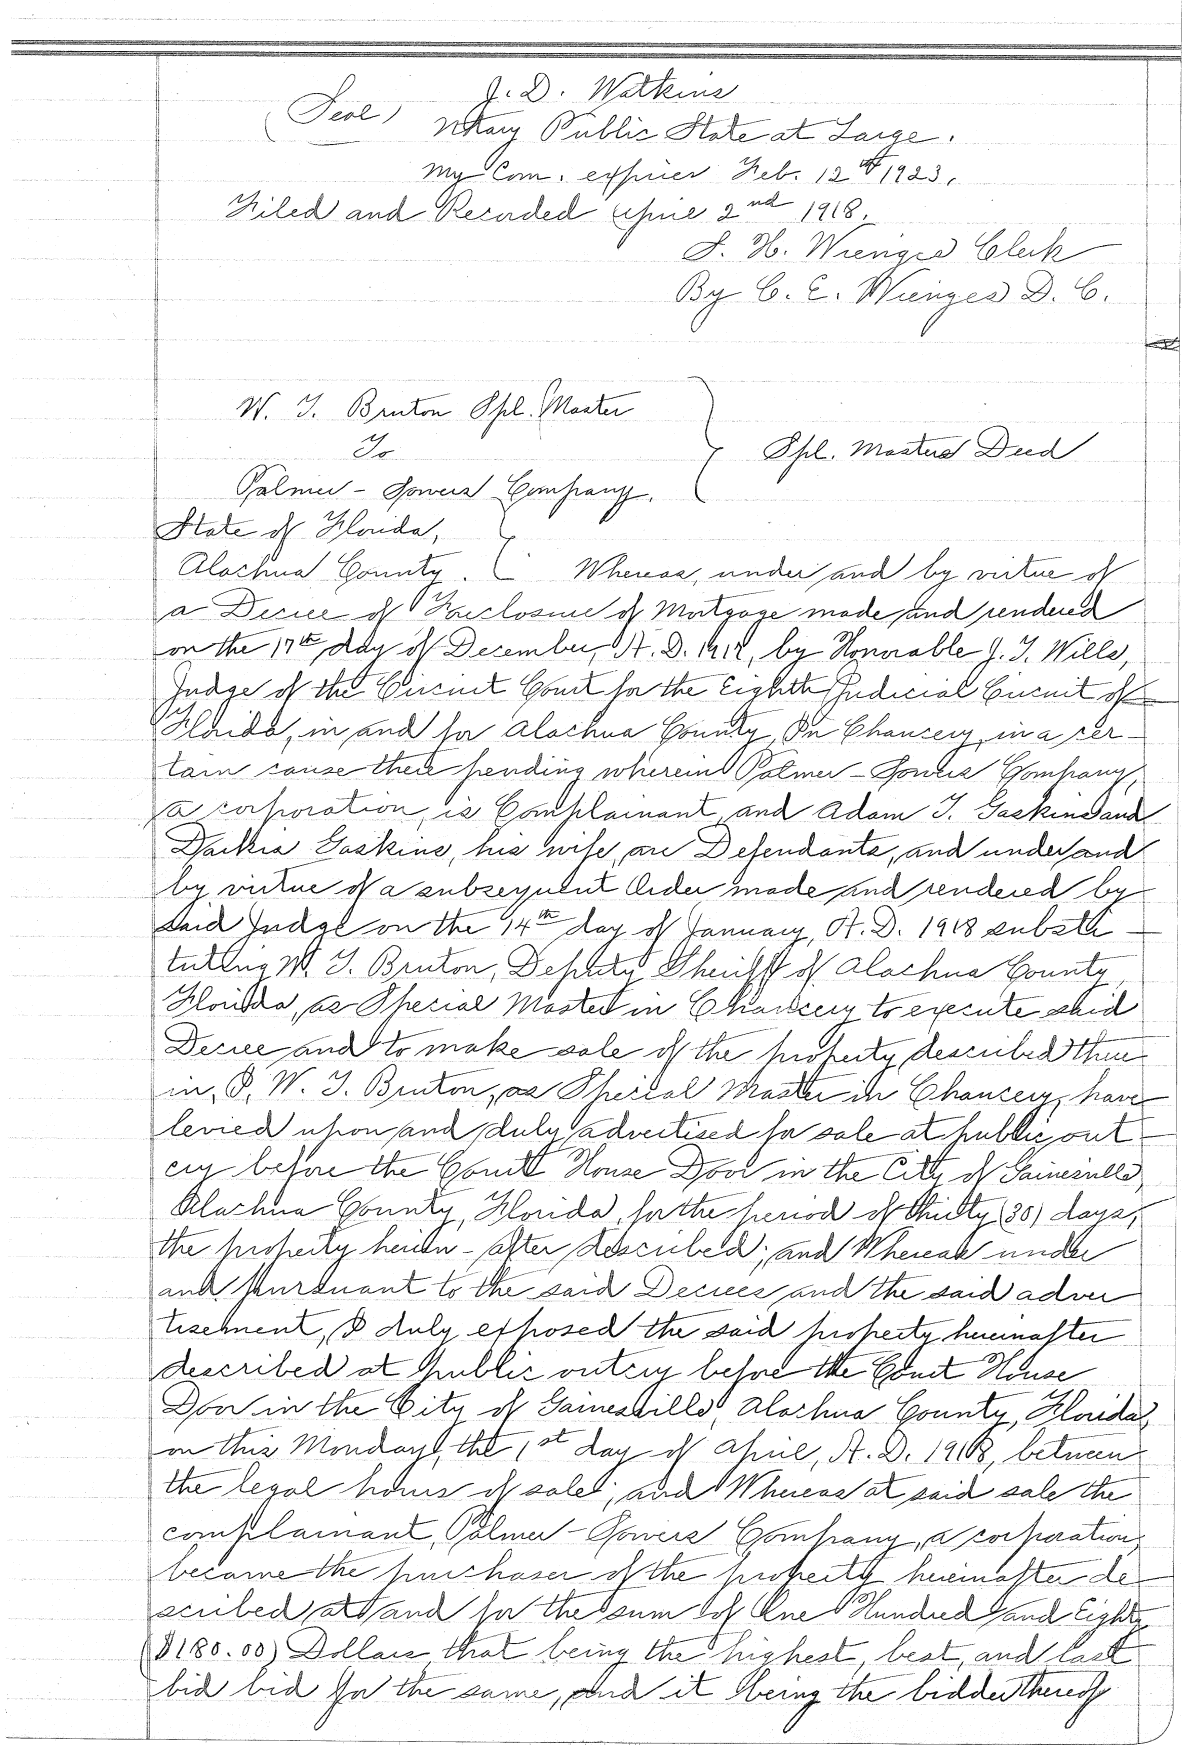 J. D. Watkins
(Seal) Notary Public State at Large.
My Com. expires Feb. 12th 1923.
Filed and Recorded April 2nd 1918.
S. H. Wienges Clerk
By C. E. Wienges D. C.
W. T. Bruton Spl. Master
To
Spl. Masters Deed
Palmer - Sowers Company.
State of Florida,
Alachua County. Whereas, under and by virtue of
a Decree of Foreclosure of Mortgage made and rendered
on the 17th day of December, A. D. 1917, by Honorable J. T. Wills,
Judge of the Circuit Court for the Eighth Judicial Circuit of
Florida, in and for Alachua County, In Chancery, in a cer-
tain cause there pending wherein Palmer - Sowers Company,
a corporation, is Complainant, and Adam T. Gaskins and
Gaskins, his wife, are Defendants, and under and
by virtue of a subsequent Order made and rendered by
said Judge on the 14th day of January, A. D. 1918 substi-
tuting W. T. Bruton, Deputy Sheriff of Alachua County
Florida, as Special Master in Chancery to execute said
Decree and to make sale of the property described there
in, I, W. T. Bruton, as Special Master in Chancery, have
levied upon and duly advertised for sale at public out-
cry before the Court House Door in the City of Gainesville,
Alachua County, Florida, for the period of thirty (30) days,
the property herein - after described; and Whereas under
and pursuant to the said Decrees and the said adver
tisement, I duly exposed the said property hereinafter
described at public outcry before the Court House
Door in the City of Gainesville, Alachua County, Florida,
on this Monday, the 1st day of April, A. D. 1918, between
the legal hours of sale; and Whereas at said sale the
complainant, Palmer - Sowers Company, a corporation,
became the purchaser of the property hereinafter de-
scribed at and for the sum of One Hundred and Eighty
($180.00) Dollars, that being the highest, best, and last
bid bid for the same, and it being the bidder thereof